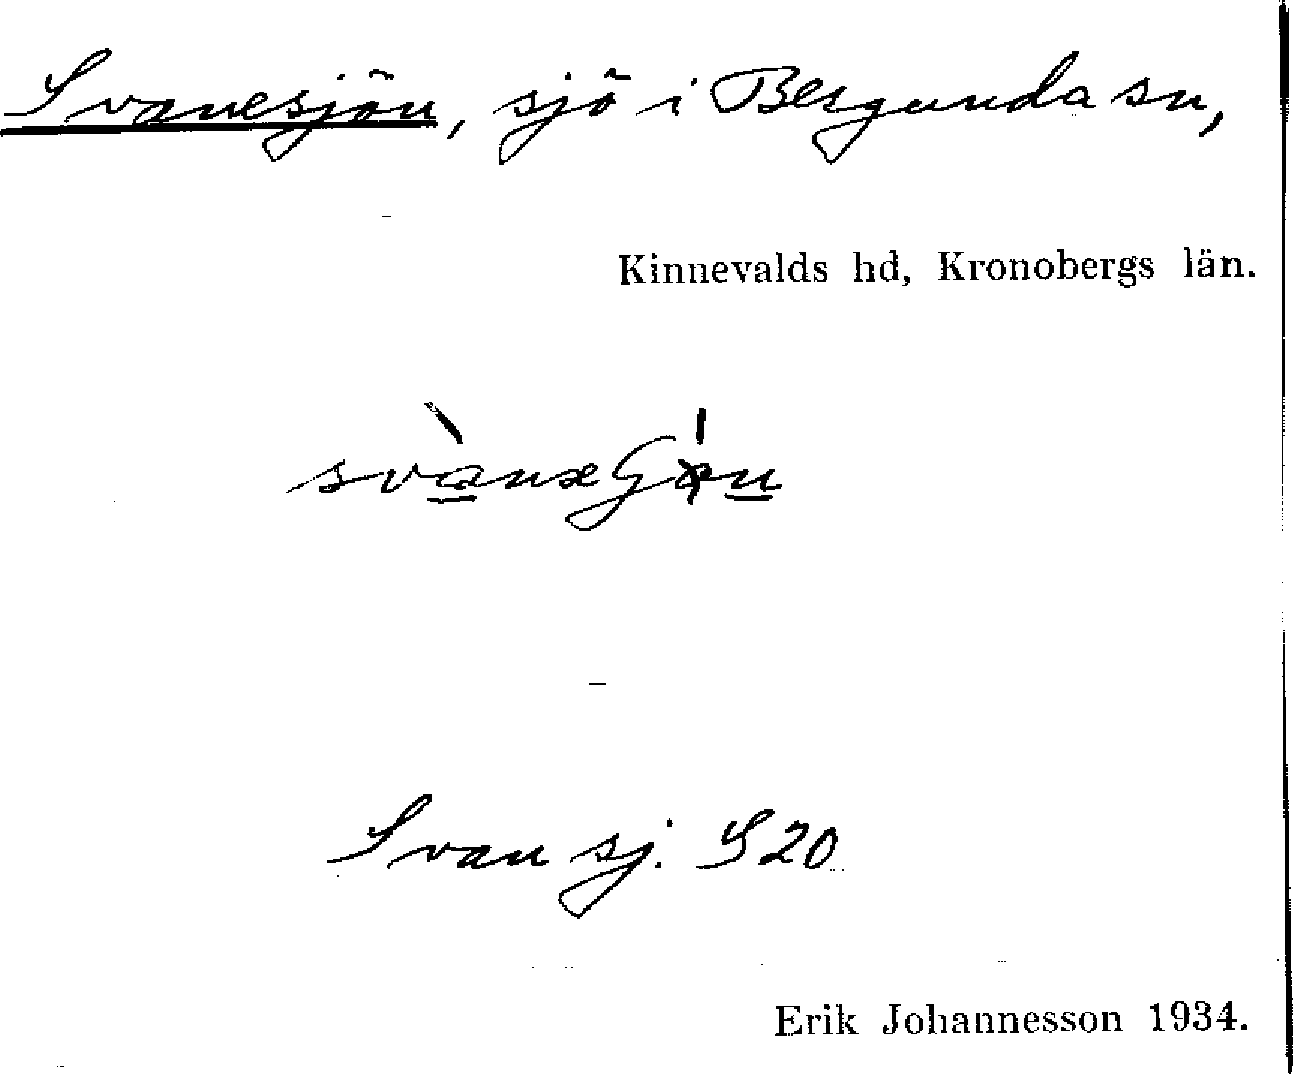 Svanesjön, sjö i Bergunda sn,
Kinnevalds hd, Kronobergs län.
Svansj. S20
Erik Johannesson 1934.